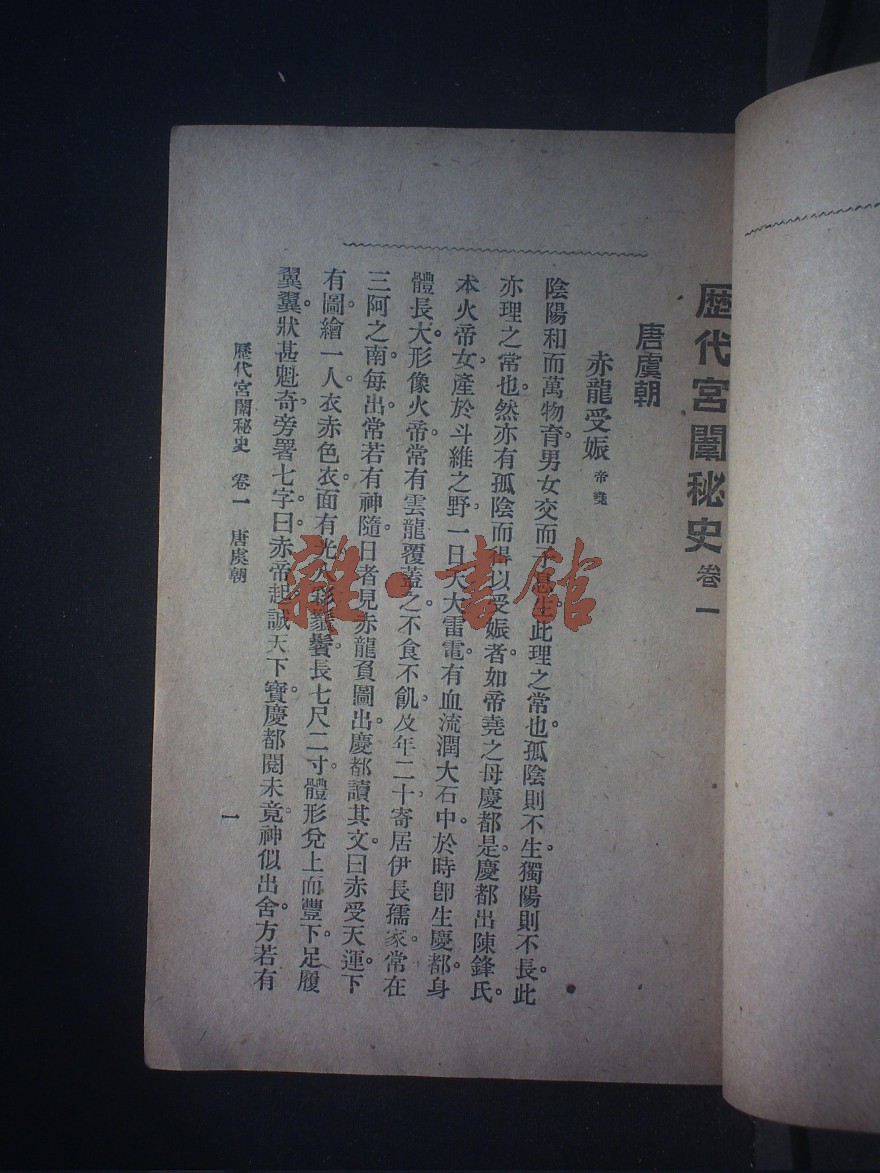 歷代宮闈秘史 卷一
唐虞朝
赤龍受娠 帝堯
陰陽和而萬物育。男女交而子息生。此理之常也。孤陰則不生。獨陽則不長。此
亦理之常也。然亦有孤陰而得以受娠者。如帝堯之母慶都是。慶都出陳鋒氏。
本火帝女。產於斗維之野。一日天大雷電。有血流潤大石中。於時卽生慶都。身
體長大。形像火帝。常有雲龍覆蓋之。不食不飢。及年二十。寄居伊長孺家。常在
三阿之南。每出常若有神隨。日者見赤龍負圖出。慶都讀其文曰。赤受天運。下
有圖。繪一人衣赤色衣。面有光。八彩。鬚鬢長七尺二寸。體形兌上而豐下。足履
翼翼。狀甚魁奇。旁署七字曰。赤帝起誠天下寶。慶都閱未竟。神似出舍。方若有
歷代宮闈秘史 卷一 唐虞朝
一
雜·書館